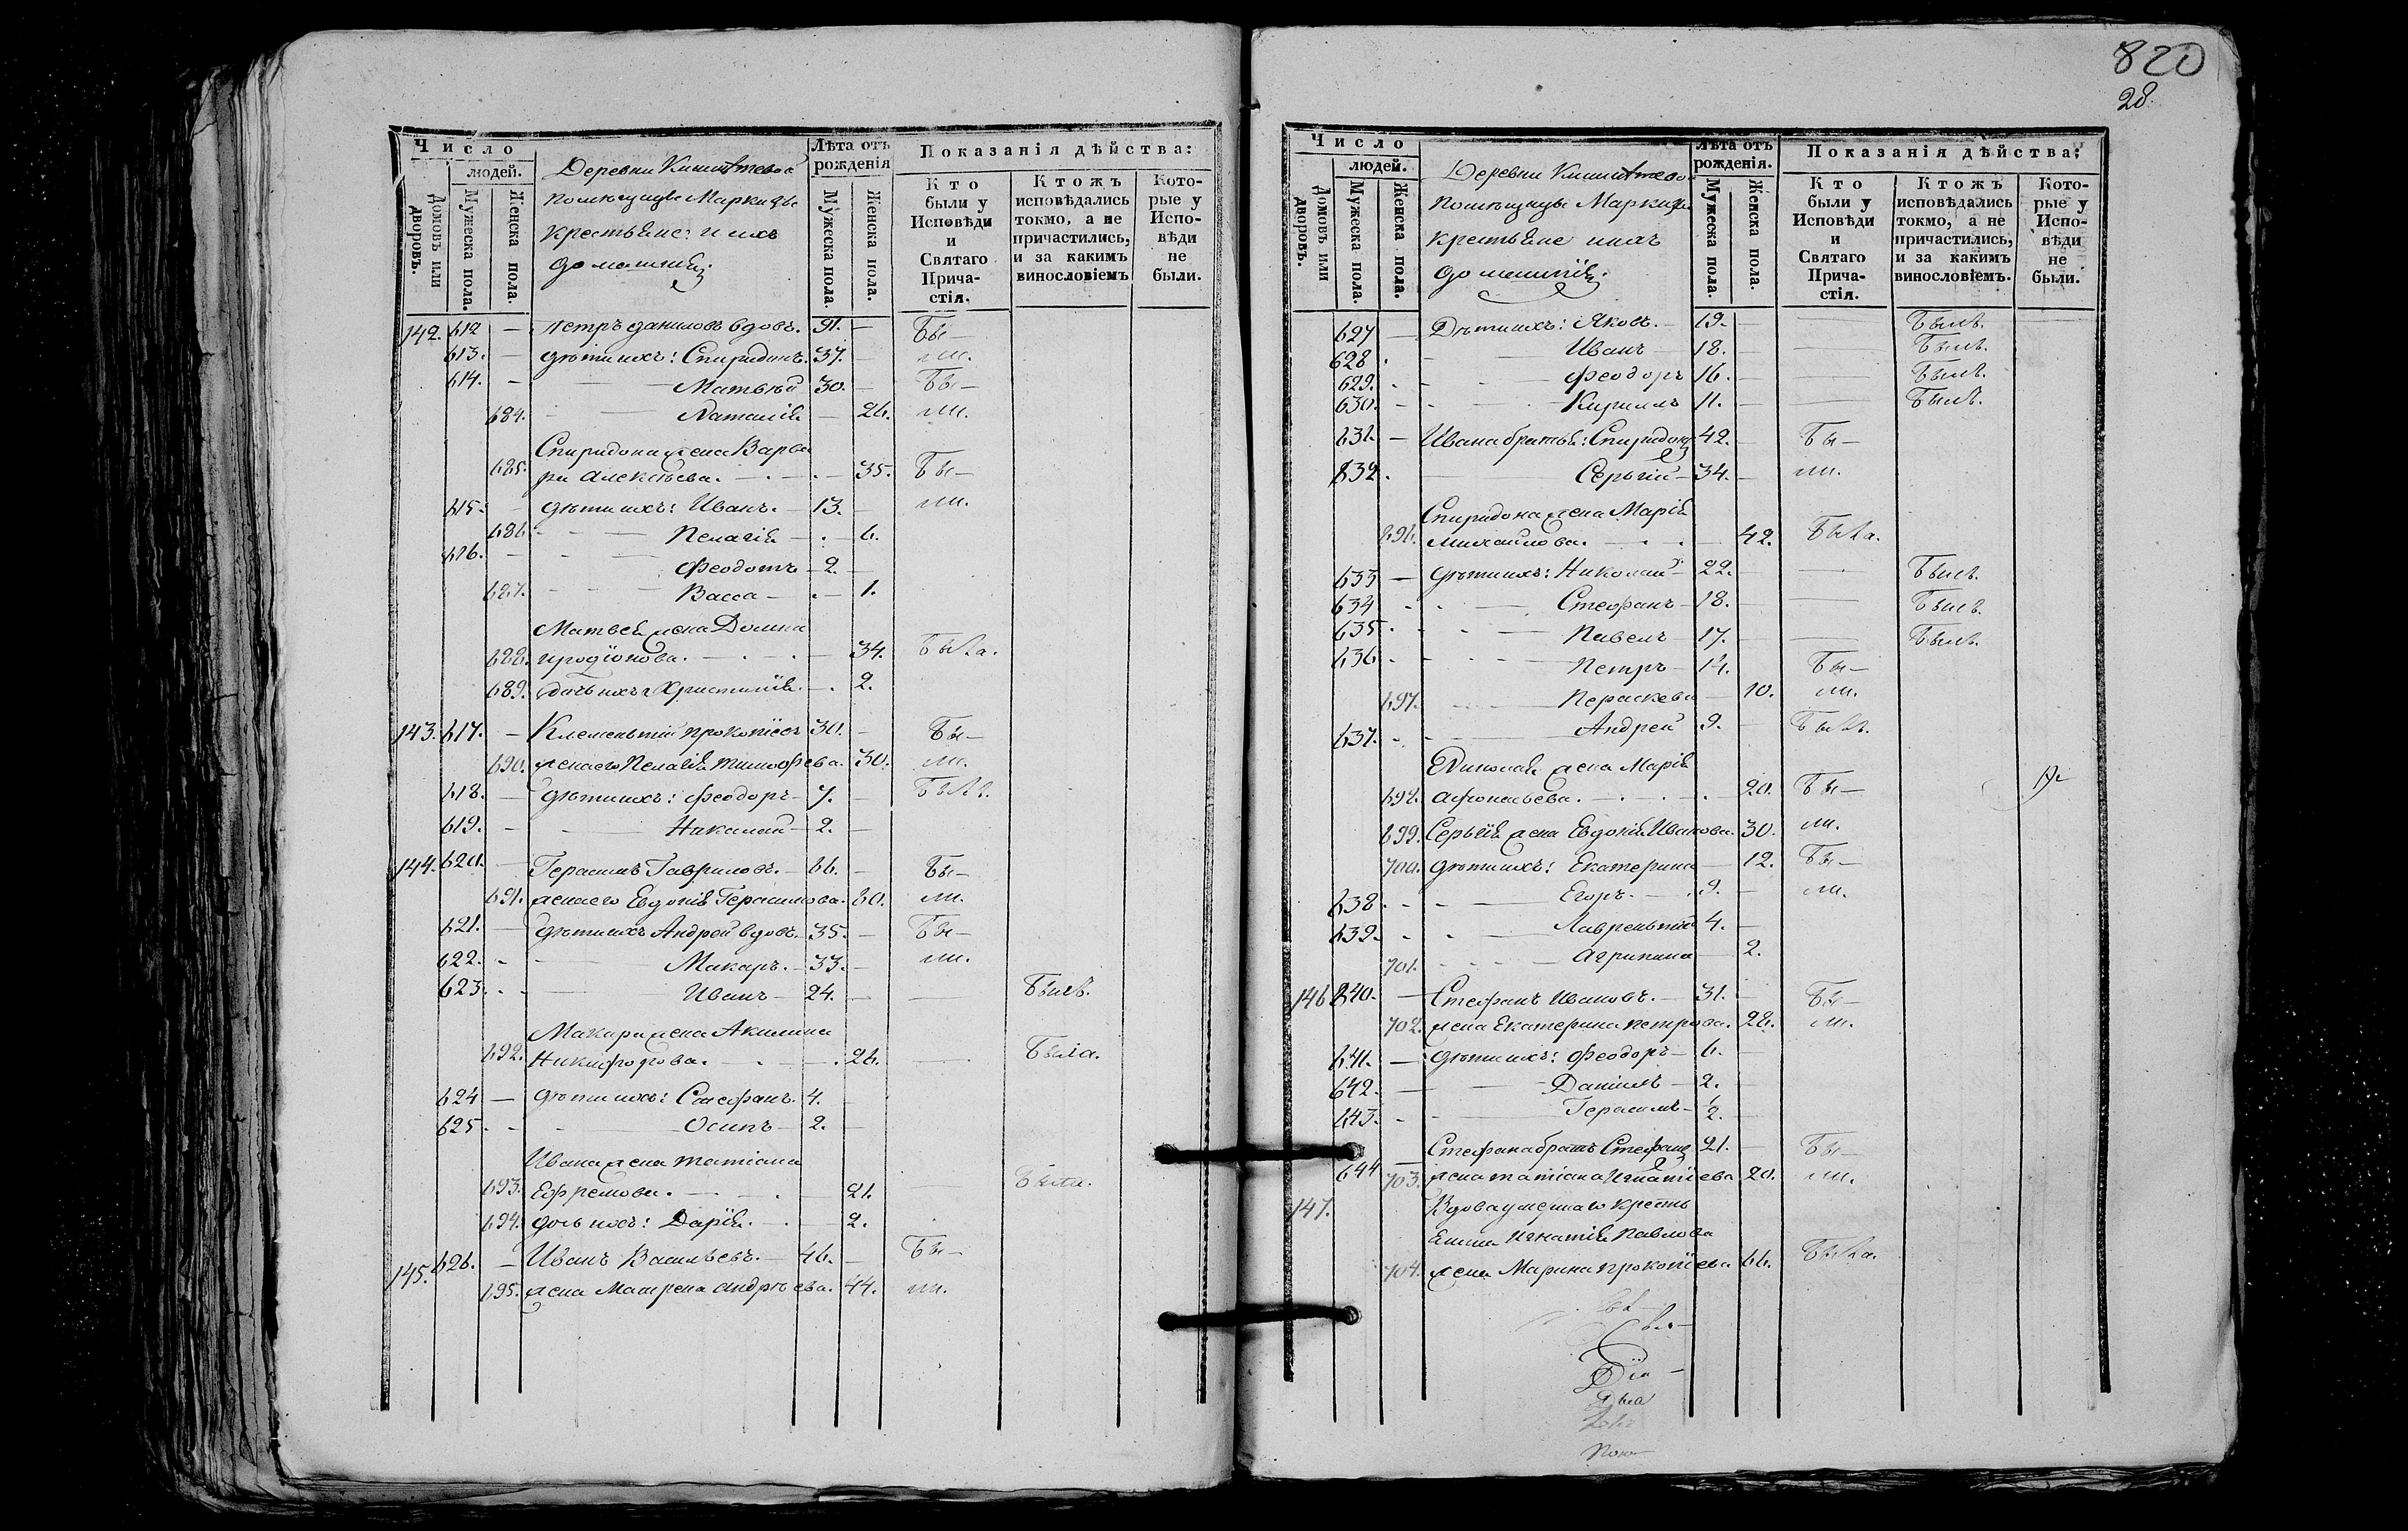 Число
людей.
Домовъ или дворовъ.
Мужеска пола.
Женска пола.
Деревни
помѣщицы Маркизы
крестьяне и ихъ
домашніе
Лѣта отъ рожденія
Мужеска пола.
Женска пола.
Показанія дѣйства:
Кто были у Исповѣди и Святаго Прича-стія.
Ктожъ исповѣдались токмо, а не причастились, и за какимъ винословіемъ
Кото-рые у Испо-вѣди не были.
142. 612 — Петръ Даниловъ вдовъ. 91. — Бы—
613. — дѣти ихъ: Спиридонъ. 37. — ли.
614. — Матвѣй 30. — Бы—
684. — Наталія — 26. ли.
Спиридона жена Варва
685. ра Алексѣева. — 35. Бы—
615. — дѣти ихъ: Иванъ. — 13. — ли.
686. — Пелагія — 6.
616. — Феодотъ — 2. —
687. — Васса — 1.
Матвея жена Домна
688. иродіонова. — 34. Была.
689. дочь ихъ Христинія. — 2.
143. 617. — Клементій Прокопіевъ 30. — Бы—
690. жена его Пелагія Тимофеева. 30. ли.
618. — дѣти ихъ: Феодоръ — 7. — Былъ.
619. — Николай — 2. —
144. 620. — Герасимъ Гавриловъ. — 66. — Бы—
691. жена его Евдокія Герасимова. 60. ли.
621. — дѣти ихъ Андрей вдовъ. — 35. — Бы—
622. — Макаръ. — 33. — ли.
623. — Иванъ — 24. — Былъ.
Макара жена Акилина
692. Никифорова. — 26. — Была.
624 — дѣти ихъ: Стефанъ. 4. —
625. — Осипъ — 2. —
Ивана жена Татіана
693. Ефремова. — 21. — Была.
694. дочь ихъ: Дарія. — 2.
145. 626. — Иванъ Васильевъ. — 46. — Бы—
695. жена Матрена Андрѣева. 44. ли.
820
28.
Число
людей.
Домовъ или дворовъ.
Мужеска пола.
Женска пола.
Деревни
помѣщицы Маркизы
крестьяне ихъ
домашніе
Лѣта отъ рожденія.
Мужеска пола.
Женска пола.
Показанія дѣйства:
Кто были у Исповѣди и Святаго Прича-стія.
Ктожъ исповѣдались токмо, а не причастились, и за какимъ винословіемъ.
Кото-рые у Испо-вѣди не были.
627 — Дѣти ихъ: Яковъ. — 19. — Былъ.
628. — Иванъ — 18. — Былъ.
629. — Феодоръ 16. — Былъ.
630. — Кирилъ 11. — Былъ.
631. — Ивана братья: Спиридонъ 42. — Бы—
632. — Сергій — 34. — ли.
Спиридона жена Марія
696. Михаилова. — 42. Была.
633 — дѣти ихъ: Николай — 22. — Былъ.
634 — Стефанъ — 18. — Былъ.
635. — Павелъ — 17. — Былъ.
636. — Петръ — 14. Бы—
697. — Пераскева — 10. ли.
637. — Андрей 9. — Былъ.
Николая жена Марія
698. Афонасьева. — 20. Бы—
699. Сергія жена Евдокія Иванова. 30. ли.
700. дѣти ихъ: Екатерина — 12. Бы—
638. — Егоръ. — 9. — ли.
639. — Лаврентій 4. —
701. — Агрипина — 2.
146 640. — Стефанъ Ивановъ. — 31. — Бы—
702. жена Екатерина Петрова. 28. ли.
641. — дѣти ихъ: Феодоръ — 6. —
642. — Даніилъ — 2. —
643. — Герасимъ — 1/2. —
Стефана братъ Стефанъ 21. — Бы—
644 703. жена Татіана Игнатіева 20. ли.
147. Вдова умершаго кресть
янина Игнатія Павлова
704. жена Марина Прокопіева 66. Была.